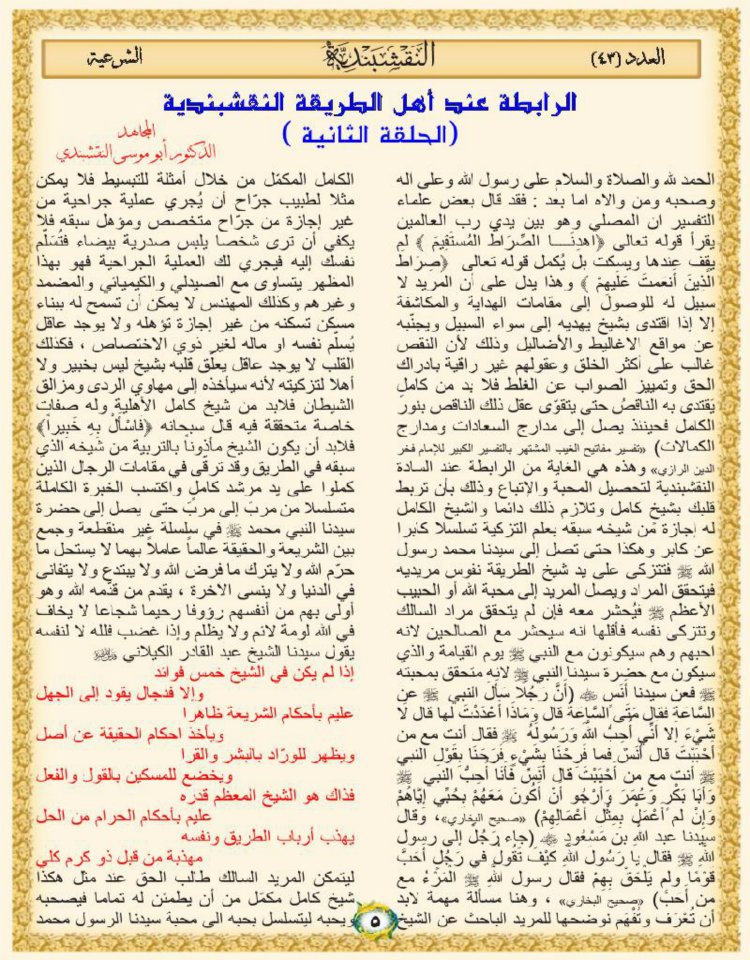 العدد (٤٣)
النقشبندية
الشرعية
الرابطة عند أهل الطريقة النقشبندية
(الحلقة الثانية )
المجاهد
الدكتور أبو موسى النقشبندي
الحمد لله والصلاة والسلام على رسول الله وعلى اله
وصحبه ومن والاه اما بعد : فقد قال بعض علماء
التفسير ان المصلي وهو بين يدي رب العالمين
يقرأ قوله تعالى ﴿اهدِنَــا الصِّرَاطَ المُستَقِيمَ ﴾ لم
يقف عندها ويسكت بل يُكمل قوله تعالى ﴿صِرَاطَ
الَّذِينَ أَنعَمتَ عَلَيهِمْ ﴾ وهذا يدل على أن المريد لا
سبيل له للوصول إلى مقامات الهداية والمكاشفة
إلا إذا اقتدى بشيخ يهديه إلى سواء السبيل ويجنّبه
عن مواقع الاغاليط والأضاليل وذلك لأن النقص
غالب على أكثر الخلق وعقولهم غير راقية بادراك
الحق وتمييز الصواب عن الغلط فلا بد من كاملٍ
يَقتدي به الناقصُ حتى يتقوّى عقل ذلك الناقص بنور
الكامل فحينئذ يصل إلى مدارج السعادات ومدارج
الكمالات) «تفسير مفاتيح الغيب المشتهر بالتفسير الكبير للإمام فخر
الدين الرازي» وهذه هي الغاية من الرابطة عند السادة
النقشبندية لتحصيل المحبة والإتباع وذلك بأن تربط
قلبك بشيخ كامل وتلازم ذلك دائما والشيخ الكامل
له إجازة من شيخه سبقه بعلم التزكية تسلسلا كابرا
عن كابر وهكذا حتى تصل إلى سيدنا محمد رسول
الله ﷺ فتتزكى على يد شيخ الطريقة نفوس مريديه
فيتحقق المراد ويصل المريد إلى محبة الله أو الحبيب
الأعظم ﷺ فيُحشر معه فإن لم يتحقق مراد السالك
وتتزكى نفسه فأقلها انه سيحشر مع الصالحين لانه
احبهم وهم سيكونون مع النبي ﷺ يوم القيامة والذي
سيكون مع حضرة سيدنا النبي ﷺ لانه متحقق بمحبته
ﷺ فعن سيدنا أَنَسٍ (أَنَّ رَجُلًا سَأَلَ النبي ﷺ عن
السَّاعَةِ فقال مَتَى السَّاعَةُ قال وَمَاذَا أَعْدَدْتَ لها قال لَا
شَيْءَ إلا أَنِّي أُحِبُّ اللهَ وَرَسُولَهُ ﷺ فقال أنت مع من
أَحْبَبْتَ قال أَنَسٌ فما فَرِحْنَا بشَيْءٍ فَرَحَنَا بِقَوْلِ النبي
ﷺ أنت مع من أَحْبَبْتَ قال أَنَسٌ فَأَنَا أُحِبُّ النبي ﷺ
وَأَبَا بَكْرٍ وَعُمَرَ وَأَرْجُو أَنْ أَكُونَ مَعَهُمْ بِحُبِّي إِيَّاهُمْ
وَإِنْ لم أَعْمَلْ بِمِثْلِ أَعْمَالِهِمْ) «صحيح البخاري»، وقال
سيدنا عبد اللهِ بن مَسْعُودٍ (جاء رَجُلٌ إلى رسول
اللهِ ﷺ فقال يا رَسُولَ اللهِ كَيْفَ تَقُولُ في رَجُلٍ أَحَبَّ
قَوْمًا ولم يَلْحَقْ بِهِمْ فقال رسول اللهِ ﷺ الْمَرْءُ مع
من أَحَبَّ) «صحيح البخاري» ، وهنا مسألة مهمة لابد
أن تُعْرَف وتُفْهَم نوضحها للمريد الباحث عن الشيخ
الكامل المكمّل من خلال أمثلة للتبسيط فلا يمكن
مثلا لطبيب جرّاح أن يُجري عملية جراحية من
غير إجازة من جرّاح متخصص ومؤهل سبقه فلا
يكفي أن ترى شخصا يلبس صدرية بيضاء فتُسَلّم
نفسك إليه فيجري لك العملية الجراحية فهو بهذا
المظهر يتساوى مع الصيدلي والكيميائي والمضمد
وغيرهم وكذلك المهندس لا يمكن أن تسمح له ببناء
مسكن تسكنه من غير إجازة تؤهله ولا يوجد عاقل
يُسلّم نفسه او ماله لغير ذوي الاختصاص ، فكذلك
القلب لا يوجد عاقل يعلّق قلبه بشيخ ليس بخبير ولا
أهلا لتزكيته لأنه سيأخذه إلى مهاوي الردى ومزالق
الشيطان فلابد من شيخ كامل الأهلية وله صفات
خاصة متحققة فيه قال سبحانه ﴿فَاسْأَلْ بِهِ خَبِيراً﴾
فلابد أن يكون الشيخ مأذوناً بالتربية من شيخه الذي
سبقه في الطريق وقد ترقّى في مقامات الرجال الذين
كملوا على يد مرشد كامل واكتسب الخبرة الكاملة
متسلسلا من مربّ إلى مربّ حتى يصل إلى حضرة
سيدنا النبي محمد ﷺ في سلسلة غير منقطعة وجمع
بين الشريعة والحقيقة عالماً عاملاً بهما لا يستحل ما
حرّم الله ولا يترك ما فرض الله ولا يبتدع ولا يتفانى
في الدنيا ولا ينسى الاخرة ، يقدم من قدّمه الله وهو
أولى بهم من أنفسهم رؤوفا رحيما شجاعا لا يخاف
في الله لومة لائم ولا يظلم وإذا غضب فلله لا لنفسه
يقول سيدنا الشيخ عبد القادر الكيلاني
إذا لم يكن في الشيخ خمس فوائد
وإلا فدجال يقود إلى الجهل
عليم بأحكام الشريعة ظاهرا
ويأخذ احكام الحقيقة عن أصل
ويظهر للورّاد بالبشر والقرا
ويخضع للمسكين بالقول والفعل
فذاك هو الشيخ المعظم قدره
عليم بأحكام الحرام من الحل
يهذب أرباب الطريق ونفسه
مهذبة من قبل ذو كرم كلي
ليتمكن المريد السالك طالب الحق عند مثل هكذا
شيخ كامل مكمّل من أن يطمئن له تماما فيصحبه
ويحبه ليتسلسل بحبه الى محبة سيدنا الرسول محمد
٥